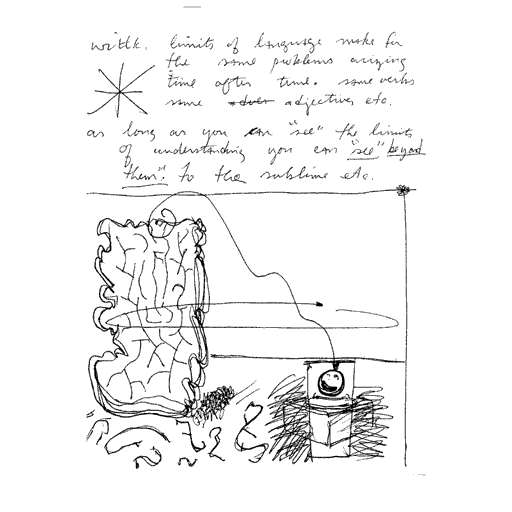 wittk. limits of language make for
the same problems arising
time after time. same verbs
same adjectives etc.
as long as you can "see" the limits
of understanding you can "see" beyond
them". to the sublime etc.